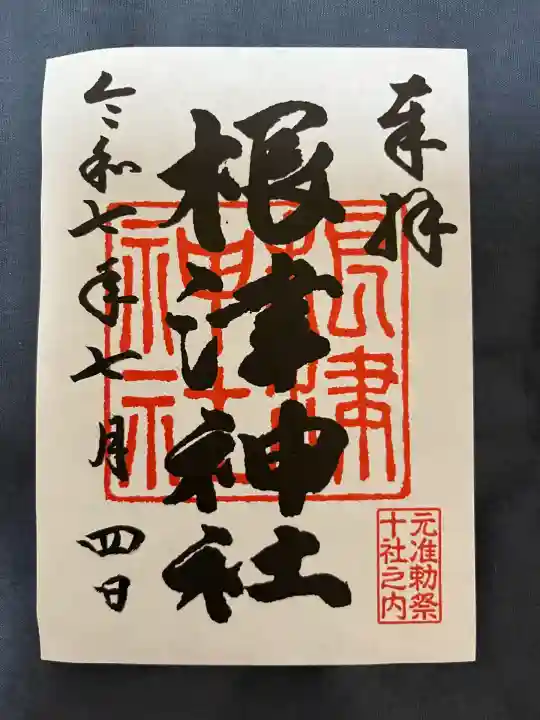 奉拝
根津神社
根津神社
令和七年七月四日
元准勅祭
十社之内